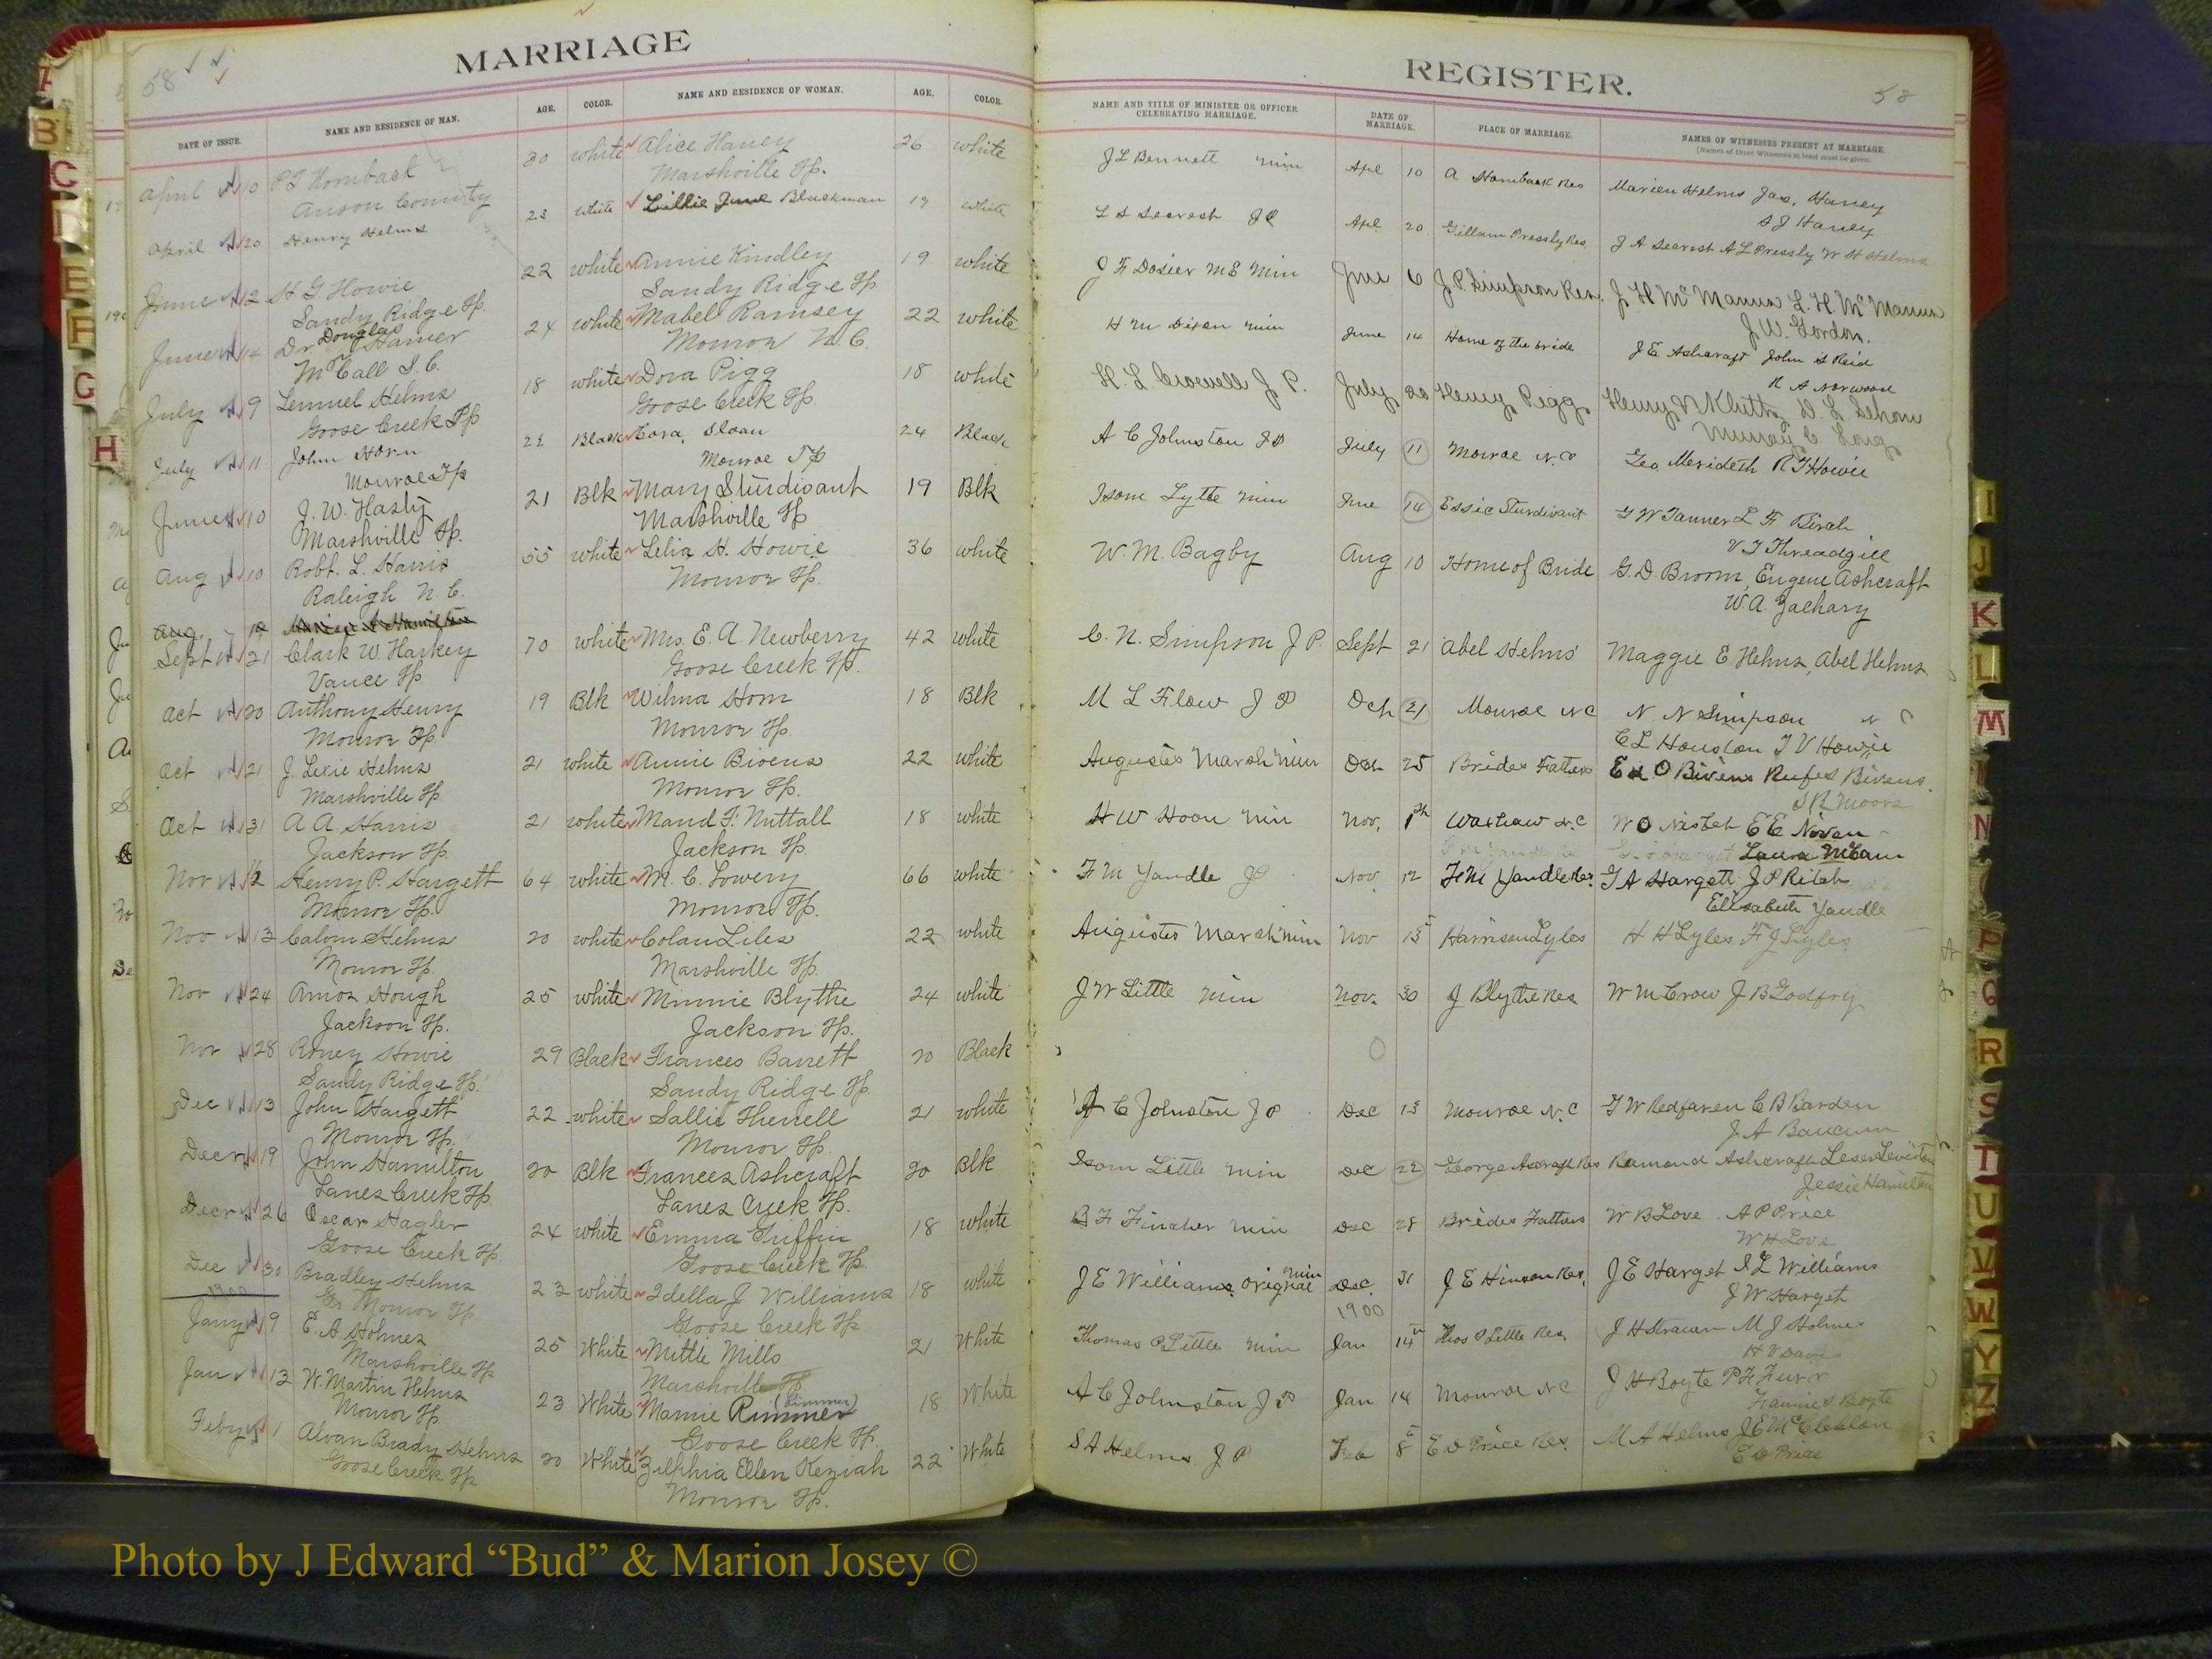 58
MARRIAGE
DATE OF ISSUE.
NAME AND RESIDENCE OF MAN.
AGE.
COLOR.
NAME AND RESIDENCE OF WOMAN.
AGE.
COLOR.
April 10 Hornback 30 white Alice Haney 26 white
Anson County Marshville Tp.
April 20 Henry Helms 23 white Lillie June Blackman 19 white
June 2 H G Howie 22 white Annie Kindley 19 white
Sandy Ridge Tp. Sandy Ridge Tp
June 14 Dr Douglas Hamer 24 white Mabel Ramsey 22 white
McCall S. C. Monroe N. C.
July 9 Lemuel Helms 18 white Dora Pigg 18 white
Goose Creek Tp Goose Creek Tp.
July 11 John Horn Black Cora Sloan 24 Black
Monroe Tp Monroe Tp
June 10 J. W. Hasty 21 Blk Mary Sturdivant 19 Blk
Marshville Tp. Marshville Tp
Aug 10 Robt. L. Harris 55 white Lelia H. Howie 36 white
Raleigh N. C. Monroe Tp.
Aug.
Sept 21 Clark W. Harkey 70 white Mrs. E. A. Newberry 42 white
Vance Tp. Goose Creek Tp.
Oct 20 Anthony Henry 19 Blk Wilma Horn 18 Blk
Monroe Tp. Monroe Tp.
Oct 21 J. Lexie Helms 21 white Annie Bivens 22 white
Marshville Tp. Monroe Tp.
Oct 31 A A Harris 21 white Maud F. Nuttall 18 white
Jackson Tp. Jackson Tp.
Nov Henry P. Hargett 64 white M. C. Lowery 66 white
Monroe Tp. Monroe Tp.
Nov 13 Calvin Helms 20 white Colan Liles 22 white
Monroe Tp. Marshville Tp.
Nov 24 Amos Hough 25 white Minnie Blythe 24 white
Jackson Tp. Jackson Tp.
Nov 28 Howie 29 Black Frances Barrett 20 Black
Sandy Ridge Tp. Sandy Ridge Tp.
Dec 13 John Hargett 22 white Sallie Therrell 21 white
Monroe Tp. Monroe Tp.
Decr 19 John Hamilton 20 Blk Frances Ashcraft 20 Blk
Lanes Creek Tp. Lanes Creek Tp.
Decr 26 Oscar Hagler 24 white Emma Griffin 18 white
Goose Creek Tp. Goose Creek Tp.
Dec 30 Bradley Helms 23 white Idella J Williams 18 white
1900 Monroe Tp Goose Creek Tp
Jany 9 E. A. Holmes 25 White Mittle Mills 21 White
Marshville Tp Marshville Tp
Jan 13 W. Martin Helms 23 White Mamie Rimmer 18 White
Monroe Tp Goose Creek Tp.
Feby 1 Alvan Brady Helms 20 White Zilphia Ellen Keziah 22 White
Goose Creek Tp Monroe Tp.
REGISTER.
58
NAME AND TITLE OF MINISTER OR OFFICER CELEBRATING MARRIAGE.
DATE OF MARRIAGE.
PLACE OF MARRIAGE.
NAMES OF WITNESSES PRESENT AT MARRIAGE.
[Names of three Witnesses at least must be given.
J L Bennett min Apl 10 A Hornback Res Marion Helms Jas. Haney
S J Haney
L S Secrest Apl 20 Gillam Pressly Res. J A Secrest A L Pressly W H Helms
J F Dosier M E Min June 6 J. P. Simpson Res. J H McManus L. H. McManus
J. W. Gordon.
H M Dixon min June 14 Home of the bride J E Ashcraft John S Reid
R A Norwood
H. L. Crowell J. P. July 20 Henry Pigg Henry V Kluttz
Murray C. Long
A C Johnston J P July 11 Monroe N. C Geo Merideth R F Howie
Isom Lytle min June 14 Essic Sturdivant G W Tanner L F
V T Threadgill
W. M. Bagby Aug 10 Home of Bride G. D. Broom, Eugene Ashcraft
W. A. Zachary
C. N. Simpson J P. Sept 21 Abel Helms Maggie E Helms, Abel Helms.
M L Flow J P Oct 21 Monroe NC N N Simpson N C
C L Houston T V Howie
Augustus Marsh min Oct 25 Brides Fathers Ed. O Bivens Rufus Bivens.
S R Moore
H W Hoon min Nov. Waxhaw N.C W O Nisbet E E Niven
Laura McCain
F M Yandle JP Nov. 12 F. M Yandle Res. G A Hargett J P
Elisabeth Yandle
Augustus Marsh min Nov 15 Harrison Lyles H H Lyles F J Lyles
J W Little min Nov. 30 J Blythe Res W M Crow J B Godfrey
A C Johnston J P Dec 13 Monroe N. C T W Redfearn C B Barden
J. A Baucum
Isom Little min Dec 22 George Ascraft Res Ramond Ashcraft
Jessie Hamilton
B F Fincher min Dec 28 Brides Fathers W B Love A P Price
W H Love
J E Williams Original min Dec. 31 J E Hinson Res. J E Harget S L Williams
1900 J W Harget
Thomas P Little min Jan 14 Thos P Little Res, J H Strawn M J Holmes
H V Davis
A C Johnston J P Jan 14 Monroe N C J H Boyte
Fannie S Boyte
S A Helms J P Feb 8 E D Price Res. M A Helms J E
E D Price
A
B
C
E
F
G
H
I
J
K
L
M
N
P
Q
R
S
T
U
V
W
Y
Z
Photo by J Edward “Bud” & Marion Josey ©